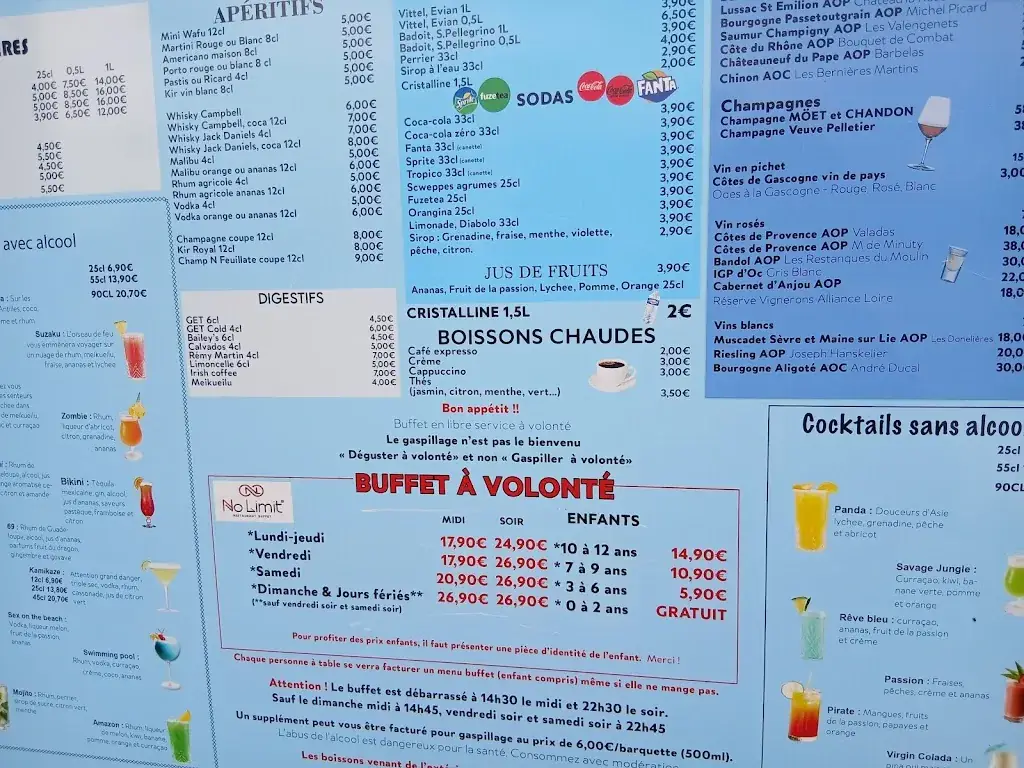 IRES
25cl 0,5L 1L
4,00€ 7,50€ 14,00€
5,00€ 8,50€ 16,00€
5,00€ 8,50€ 16,00€
3,90€ 6,50€ 12,00€
4,50€
5,50€
4,50€
5,00€
5,50€
avec alcool
25cl 6,90€
55cl 13,90€
90CL 20,70€
Suzaku : L'oiseau de feu
vous emmènera voyager sur
un nuage de rhum, meikueilu,
fraise, ananas et lychee
Zombie : Rhum,
liqueur d'abricot,
citron, grenadine,
ananas
Bikini : Téquila
mexicaine, gin, alcool,
jus d'ananas, saveurs
pastèque, framboise et
citron
69 : Rhum de Guade-
loupe, alcool, jus d'ananas,
parfums fruit du dragon,
gingembre et goyave
Kamikaze :
12cl 6,90€
25cl 13,80€
45cl 20,70€
Attention grand danger,
triple sec, vodka, rhum,
cassonade, jus de citron
vert
Sex on the beach :
Vodka, liqueur melon,
fruit de la passion,
ananas
Swimming pool :
Rhum, vodka, curraçao,
crème, coco, ananas
Mojito : Rhum, perrier,
sirop de sucre, citron vert,
menthe
Amazon : Rhum, liqueur
de melon, kiwi, banane,
pomme, orange et curraçao
APÉRITIFS
Mini Wafu 12cl 5,00€
Martini Rouge ou Blanc 8cl 5,00€
Americano maison 8cl 5,00€
Porto rouge ou blanc 8 cl 5,00€
Pastis ou Ricard 4cl 5,00€
Kir vin blanc 8cl 5,00€
Whisky Campbell 6,00€
Whisky Campbell, coca 12cl 7,00€
Whisky Jack Daniels 4cl 7,00€
Whisky Jack Daniels, coca 12cl 8,00€
Malibu 4cl 5,00€
Malibu orange ou ananas 12cl 6,00€
Rhum agricole 4cl 5,00€
Rhum agricole ananas 12cl 6,00€
Vodka 4cl 5,00€
Vodka orange ou ananas 12cl 6,00€
Champagne coupe 12cl 8,00€
Kir Royal 12cl 8,00€
Champ N Feuillate coupe 12cl 9,00€
DIGESTIFS
GET 6cl 4,50€
GET Cold 4cl 6,00€
Bailey's 6cl 4,50€
Calvados 4cl 5,00€
Rémy Martin 4cl 7,00€
Limoncelle 6cl 5,00€
Irish coffee 7,00€
Meikueilu 4,00€
Vittel, Evian 1L 3,90€
Vittel, Evian 0,5L 6,50€
Badoit, S.Pellegrino 1L 3,90€
Badoit, S.Pellegrino 0,5L 4,00€
Perrier 33cl 2,90€
Sirop à l'eau 33cl 2,00€
Cristalline 1,5L
Sprite fuzetea SODAS Coca-Cola Coca-Cola FANTA
Coca-cola 33cl 3,90€
Coca-cola zéro 33cl 3,90€
Fanta 33cl (canette) 3,90€
Sprite 33cl (canette) 3,90€
Tropico 33cl (canette) 3,90€
Scweppes agrumes 25cl 3,90€
Fuzetea 25cl 3,90€
Orangina 25cl 3,90€
Limonade, Diabolo 33cl 3,90€
Sirop : Grenadine, fraise, menthe, violette, 2,90€
pêche, citron.
JUS DE FRUITS 3,90€
Ananas, Fruit de la passion, Lychee, Pomme, Orange 25cl
CRISTALLINE 1,5L 2€
BOISSONS CHAUDES
Café expresso 2,00€
Crème 3,00€
Cappuccino 3,00€
Thés
(jasmin, citron, menthe, vert...) 3,50€
Bon appétit !!
Buffet en libre service à volonté
Le gaspillage n'est pas le bienvenu
« Déguster à volonté» et non « Gaspiller à volonté»
BUFFET À VOLONTÉ
No Limit
RESTAURANT BUFFET
MIDI SOIR ENFANTS
*Lundi-jeudi 17,90€ 24,90€ *10 à 12 ans 14,90€
*Vendredi 17,90€ 26,90€ * 7 à 9 ans 10,90€
*Samedi 20,90€ 26,90€ * 3 à 6 ans 5,90€
*Dimanche & Jours fériés** 26,90€ 26,90€ * 0 à 2 ans GRATUIT
(**sauf vendredi soir et samedi soir)
Pour profiter des prix enfants, il faut présenter une pièce d'identité de l'enfant. Merci !
Chaque personne à table se verra facturer un menu buffet (enfant compris) même si elle ne mange pas.
Attention ! Le buffet est débarrassé à 14h30 le midi et 22h30 le soir.
Sauf le dimanche midi à 14h45, vendredi soir et samedi soir à 22h45
Un supplément peut vous être facturé pour gaspillage au prix de 6,00€/barquette (500ml).
L'abus de l'alcool est dangereux pour la santé. Consommez avec modération
Les boissons venant de
Lussac St Emilion AOP
Bourgogne Passetoutgrain AOP Michel Picard
Saumur Champigny AOP Les Valengenets
Côte du Rhône AOP Bouquet de Combat
Châteauneuf du Pape AOP Barbelas
Chinon AOC Les Bernières Martins
Champagnes
Champagne MÖET et CHANDON
Champagne Veuve Pelletier
Vin en pichet
Côtes de Gascogne vin de pays 3,00
Odes à la Gascogne - Rouge, Rosé, Blanc
Vin rosés
Côtes de Provence AOP Valadas 18,0
Côtes de Provence AOP M de Minuty 38,0
Bandol AOP Les Restanques du Moulin 30,0
IGP d'Oc Gris Blanc 22,0
Cabernet d'Anjou AOP 18,0
Réserve Vignerons Alliance Loire
Vins blancs
Muscadet Sèvre et Maine sur Lie AOP Les Donelières 18,00
Riesling AOP Joseph Hanskelier 20,0
Bourgogne Aligoté AOC André Ducal 30,0
Cocktails sans alcoo
25cl
55cl
90CL
Panda : Douceurs d'Asie
lychee, grenadine, pêche
et abricot
Savage Jungle :
Curraçao, kiwi, ba-
nane verte, pomme
et orange
Rêve bleu : curraçao,
ananas, fruit de la passion
et crème
Passion : Fraises,
pêches, crème et ananas
Pirate : Mangues, fruits
de la passion, papayes et
orange
Virgin Colada : Un